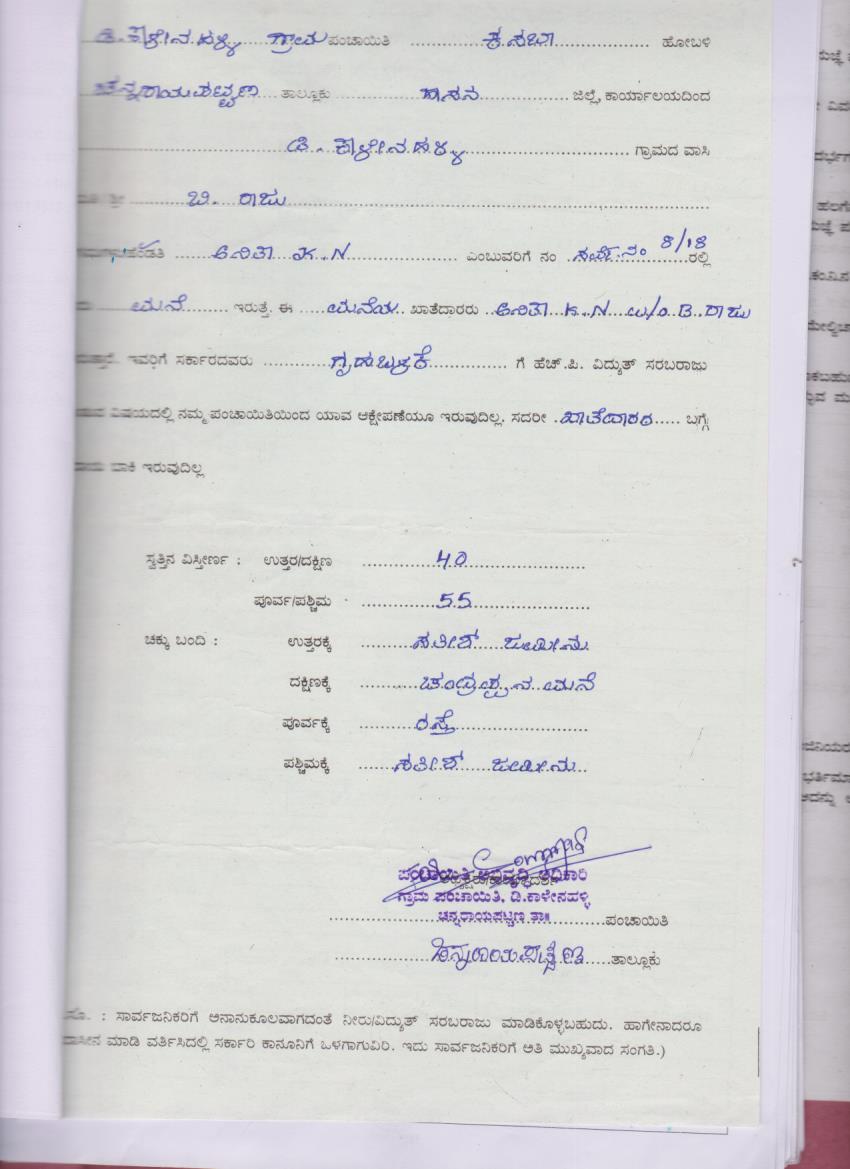 ಡಿ. ಕಾಳೇನಹಳ್ಳಿ ಗ್ರಾಮ ಪಂಚಾಯಿತಿ ಕಸಬಾ ಹೋಬಳಿ
ಚನ್ನರಾಯಪಟ್ಟಣ ತಾಲ್ಲೂಕು ಹಾಸನ ಜಿಲ್ಲೆ, ಕಾರ್ಯಾಲಯದಿಂದ
ಡಿ. ಕಾಳೇನಹಳ್ಳಿ ಗ್ರಾಮದ ವಾಸಿ
ಶ್ರೀ ಬಿ. ರಾಜು
ಅನಿತಾ K.N ಎಂಬುವರಿಗೆ ನಂ ಸರ್ವೆ ನಂ 8/18 ರಲ್ಲಿ
ಮನೆ ಇರುತ್ತೆ. ಈ ಮನೆಯ ಖಾತೆದಾರರು ಅನಿತಾ K.N W/o B. ರಾಜು
ಇವರಿಗೆ ಸರ್ಕಾರದವರು ಗೃಹಬಳಕೆ ಗೆ ಹೆಚ್.ಪಿ. ವಿದ್ಯುತ್ ಸರಬರಾಜು
ವಿಷಯದಲ್ಲಿ ನಮ್ಮ ಪಂಚಾಯಿತಿಯಿಂದ ಯಾವ ಆಕ್ಷೇಪಣೆಯೂ ಇರುವುದಿಲ್ಲ. ಸದರೀ ಖಾತೆದಾರರ ಬಗ್ಗೆ
ಬಾಕಿ ಇರುವುದಿಲ್ಲ
ಸ್ವತ್ತಿನ ವಿಸ್ತೀರ್ಣ : ಉತ್ತರ/ದಕ್ಷಿಣ 40
ಪೂರ್ವ/ಪಶ್ಚಿಮ 55
ಚಕ್ಕು ಬಂದಿ : ಉತ್ತರಕ್ಕೆ ಸತೀಶ್ ಜಮೀನು
ದಕ್ಷಿಣಕ್ಕೆ ಚಂದ್ರಪ್ಪನ ಮನೆ
ಪೂರ್ವಕ್ಕೆ ರಸ್ತೆ
ಪಶ್ಚಿಮಕ್ಕೆ ಸತೀಶ್ ಜಮೀನು
ಪಂಚಾಯಿತಿ ಅಭಿವೃದ್ಧಿ ಅಧಿಕಾರಿ
ಗ್ರಾಮ ಪಂಚಾಯಿತಿ, ಡಿ.ಕಾಳೇನಹಳ್ಳಿ
ಚನ್ನರಾಯಪಟ್ಟಣ ತಾ॥
ಪಂಚಾಯಿತಿ
ಚನ್ನರಾಯಪಟ್ಟಣ ತಾಲ್ಲೂಕು
ಸೂ. : ಸಾರ್ವಜನಿಕರಿಗೆ ಅನಾನುಕೂಲವಾಗದಂತೆ ನೀರು/ವಿದ್ಯುತ್ ಸರಬರಾಜು ಮಾಡಿಕೊಳ್ಳಬಹುದು. ಹಾಗೇನಾದರೂ
ಮಾಡಿ ವರ್ತಿಸಿದಲ್ಲಿ ಸರ್ಕಾರಿ ಕಾನೂನಿಗೆ ಒಳಗಾಗುವಿರಿ. ಇದು ಸಾರ್ವಜನಿಕರಿಗೆ ಅತಿ ಮುಖ್ಯವಾದ ಸಂಗತಿ.)